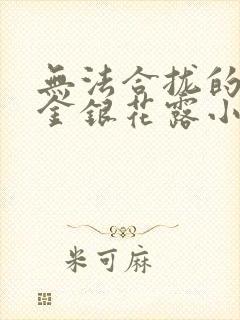 無法合拢的
金銀花露小
米可麻